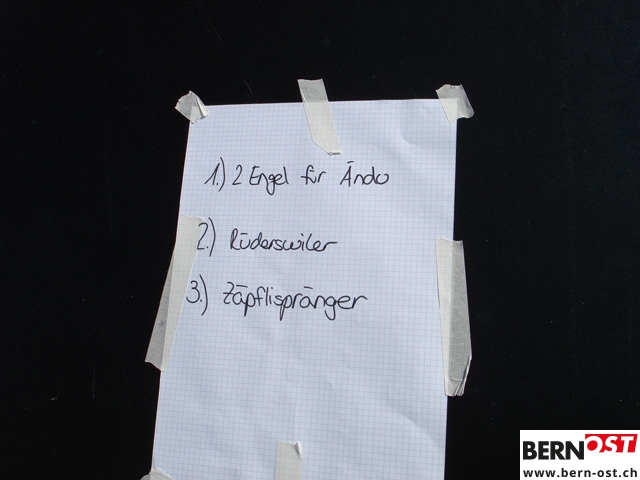 1.) 2 Engel für Ändu
2.) Rüderswiler
3.) Zäpflispränger
BERNOST
www.bern-ost.ch